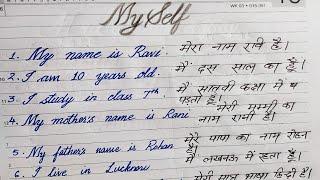 My Self
1. My name is Ravi. मेरा नाम रावि है।
2. I am 10 years old. मैं दस साल का हूँ।
3. I study in class 7th. मैं सातवी कक्षा में प
पढ़ता हूँ।
4. My mother's name is Rani मेरी मम्मी का
नाम रानी है।
5. My father's name is Rohan मेरे पापा का नाम रोहन
है।
6. I live in Lucknow मैं लखनऊ में रहता हूँ।
मेरी भाषा हिन्दी है।